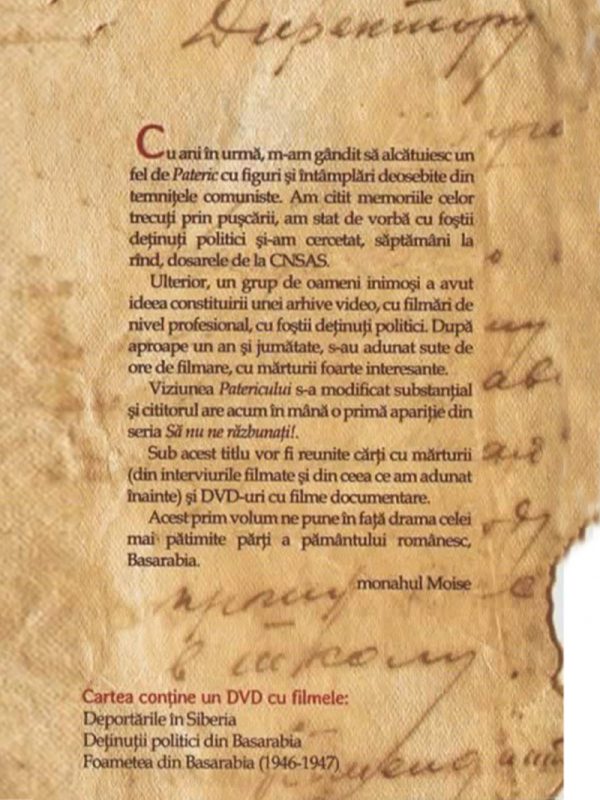 Директору
Cu ani în urmă, m-am gândit să alcătuiesc un
fel de Pateric cu figuri și întâmplări deosebite din
temnițele comuniste. Am citit memoriile celor
trecuți prin pușcării, am stat de vorbă cu foștii
deținuți politici și-am cercetat, săptămâni la
rînd, dosarele de la CNSAS.
Ulterior, un grup de oameni inimoși a avut
ideea constituirii unei arhive video, cu filmări de
nivel profesional, cu foștii deținuți politici. După
aproape un an și jumătate, s-au adunat sute de
ore de filmare, cu mărturii foarte interesante.
Viziunea Patericului s-a modificat substanțial
și cititorul are acum în mână o primă apariție din
seria Să nu ne răzbunați!.
Sub acest titlu vor fi reunite cărți cu mărturii
(din interviurile filmate și din ceea ce am adunat
înainte) și DVD-uri cu filme documentare.
Acest prim volum ne pune în față drama celei
mai pătimite părți a pământului românesc,
Basarabia.
monahul Moise
прошу
в школу.
Cartea conține un DVD cu filmele:
Deportările în Siberia
Deținuții politici din Basarabia
Foametea din Basarabia (1946-1947)